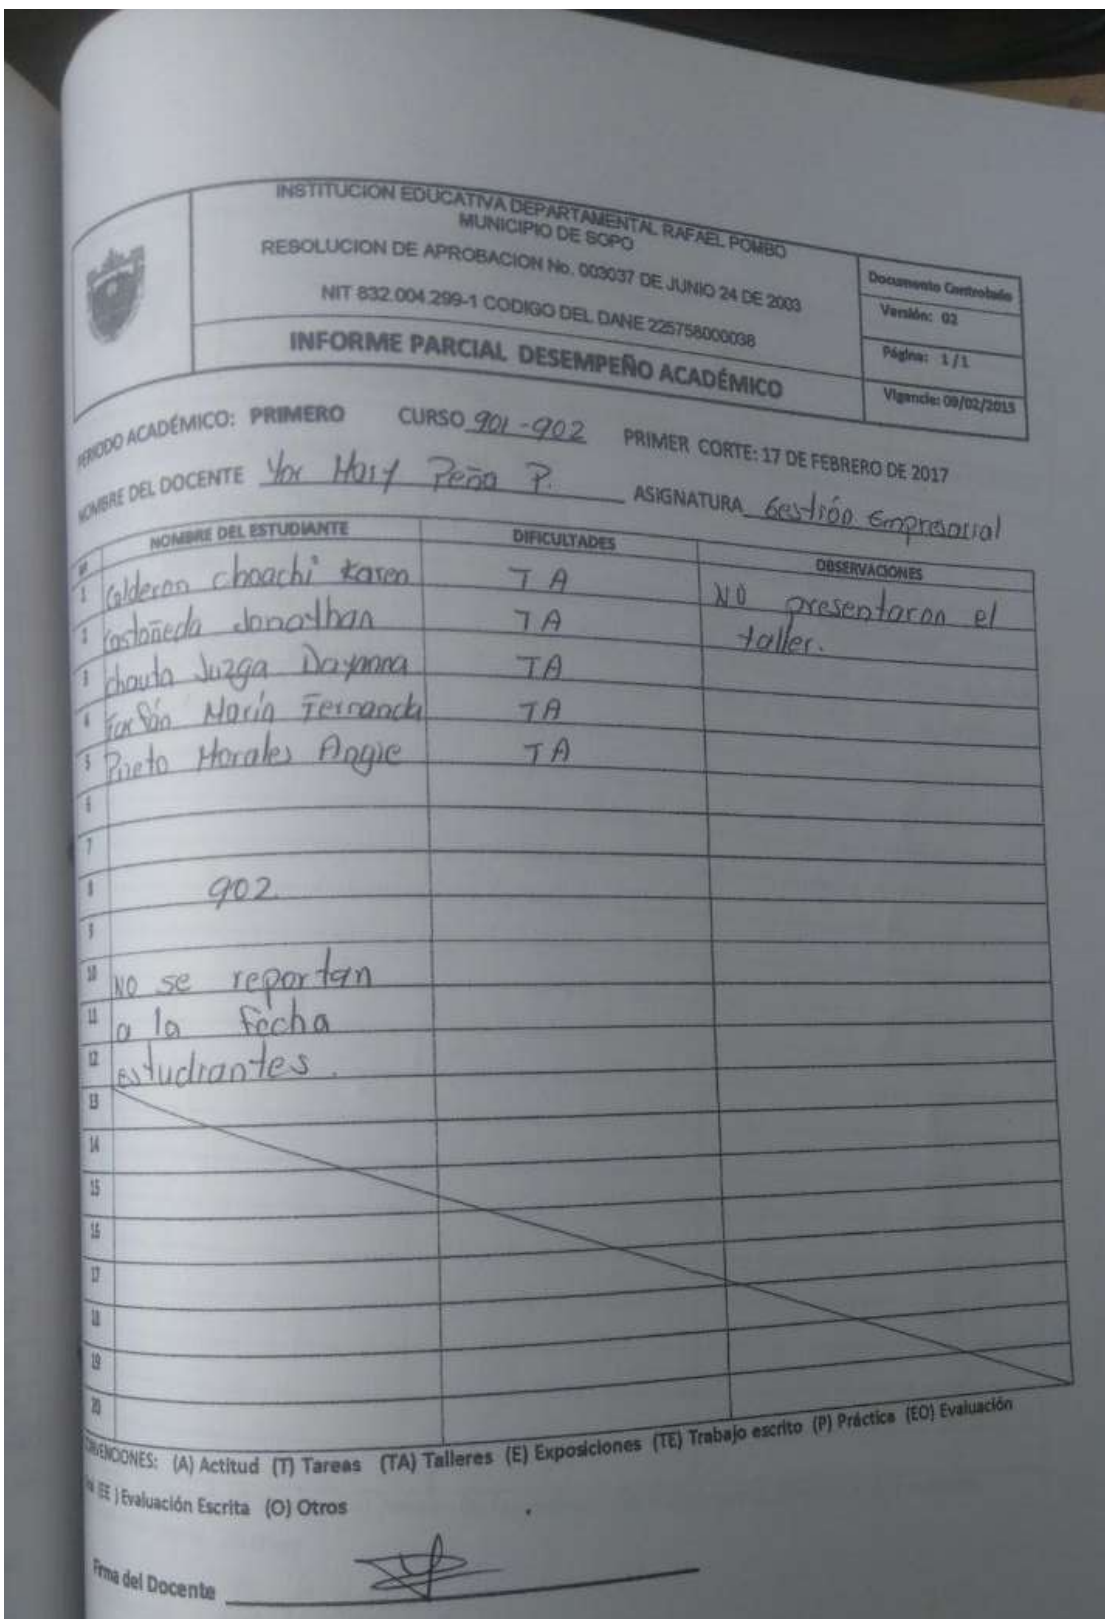 INSTITUCION EDUCATIVA DEPARTAMENTAL RAFAEL POMBO
MUNICIPIO DE SOPO
RESOLUCION DE APROBACION No. 003037 DE JUNIO 24 DE 2003
NIT 832.004.299-1 CODIGO DEL DANE 225758000038
INFORME PARCIAL DESEMPEÑO ACADÉMICO
Documento Controlado
Versión: 02
Página: 1 / 1
Vigencia: 09/02/2015
PERIODO ACADÉMICO: PRIMERO CURSO 901-902 PRIMER CORTE: 17 DE FEBRERO DE 2017
NOMBRE DEL DOCENTE Peña P. ASIGNATURA Gestión Empresarial
NOMBRE DEL ESTUDIANTE DIFICULTADES OBSERVACIONES
1 Calderon Choachi Karen TA NO presentaron el
2 Castañeda Jonathan TA taller.
3 chauta Juzga Dayanna TA
4 María Fernanda TA
5 Prieto Morales Angie TA
6
7
8 902
9
10 NO se reportan
11 a la fecha
12 estudiantes.
13
14
15
16
17
18
19
20
(A) Actitud (T) Tareas (TA) Talleres (E) Exposiciones (TE) Trabajo escrito (P) Práctica (EO) Evaluación
(EE ) Evaluación Escrita (O) Otros
Firma del Docente